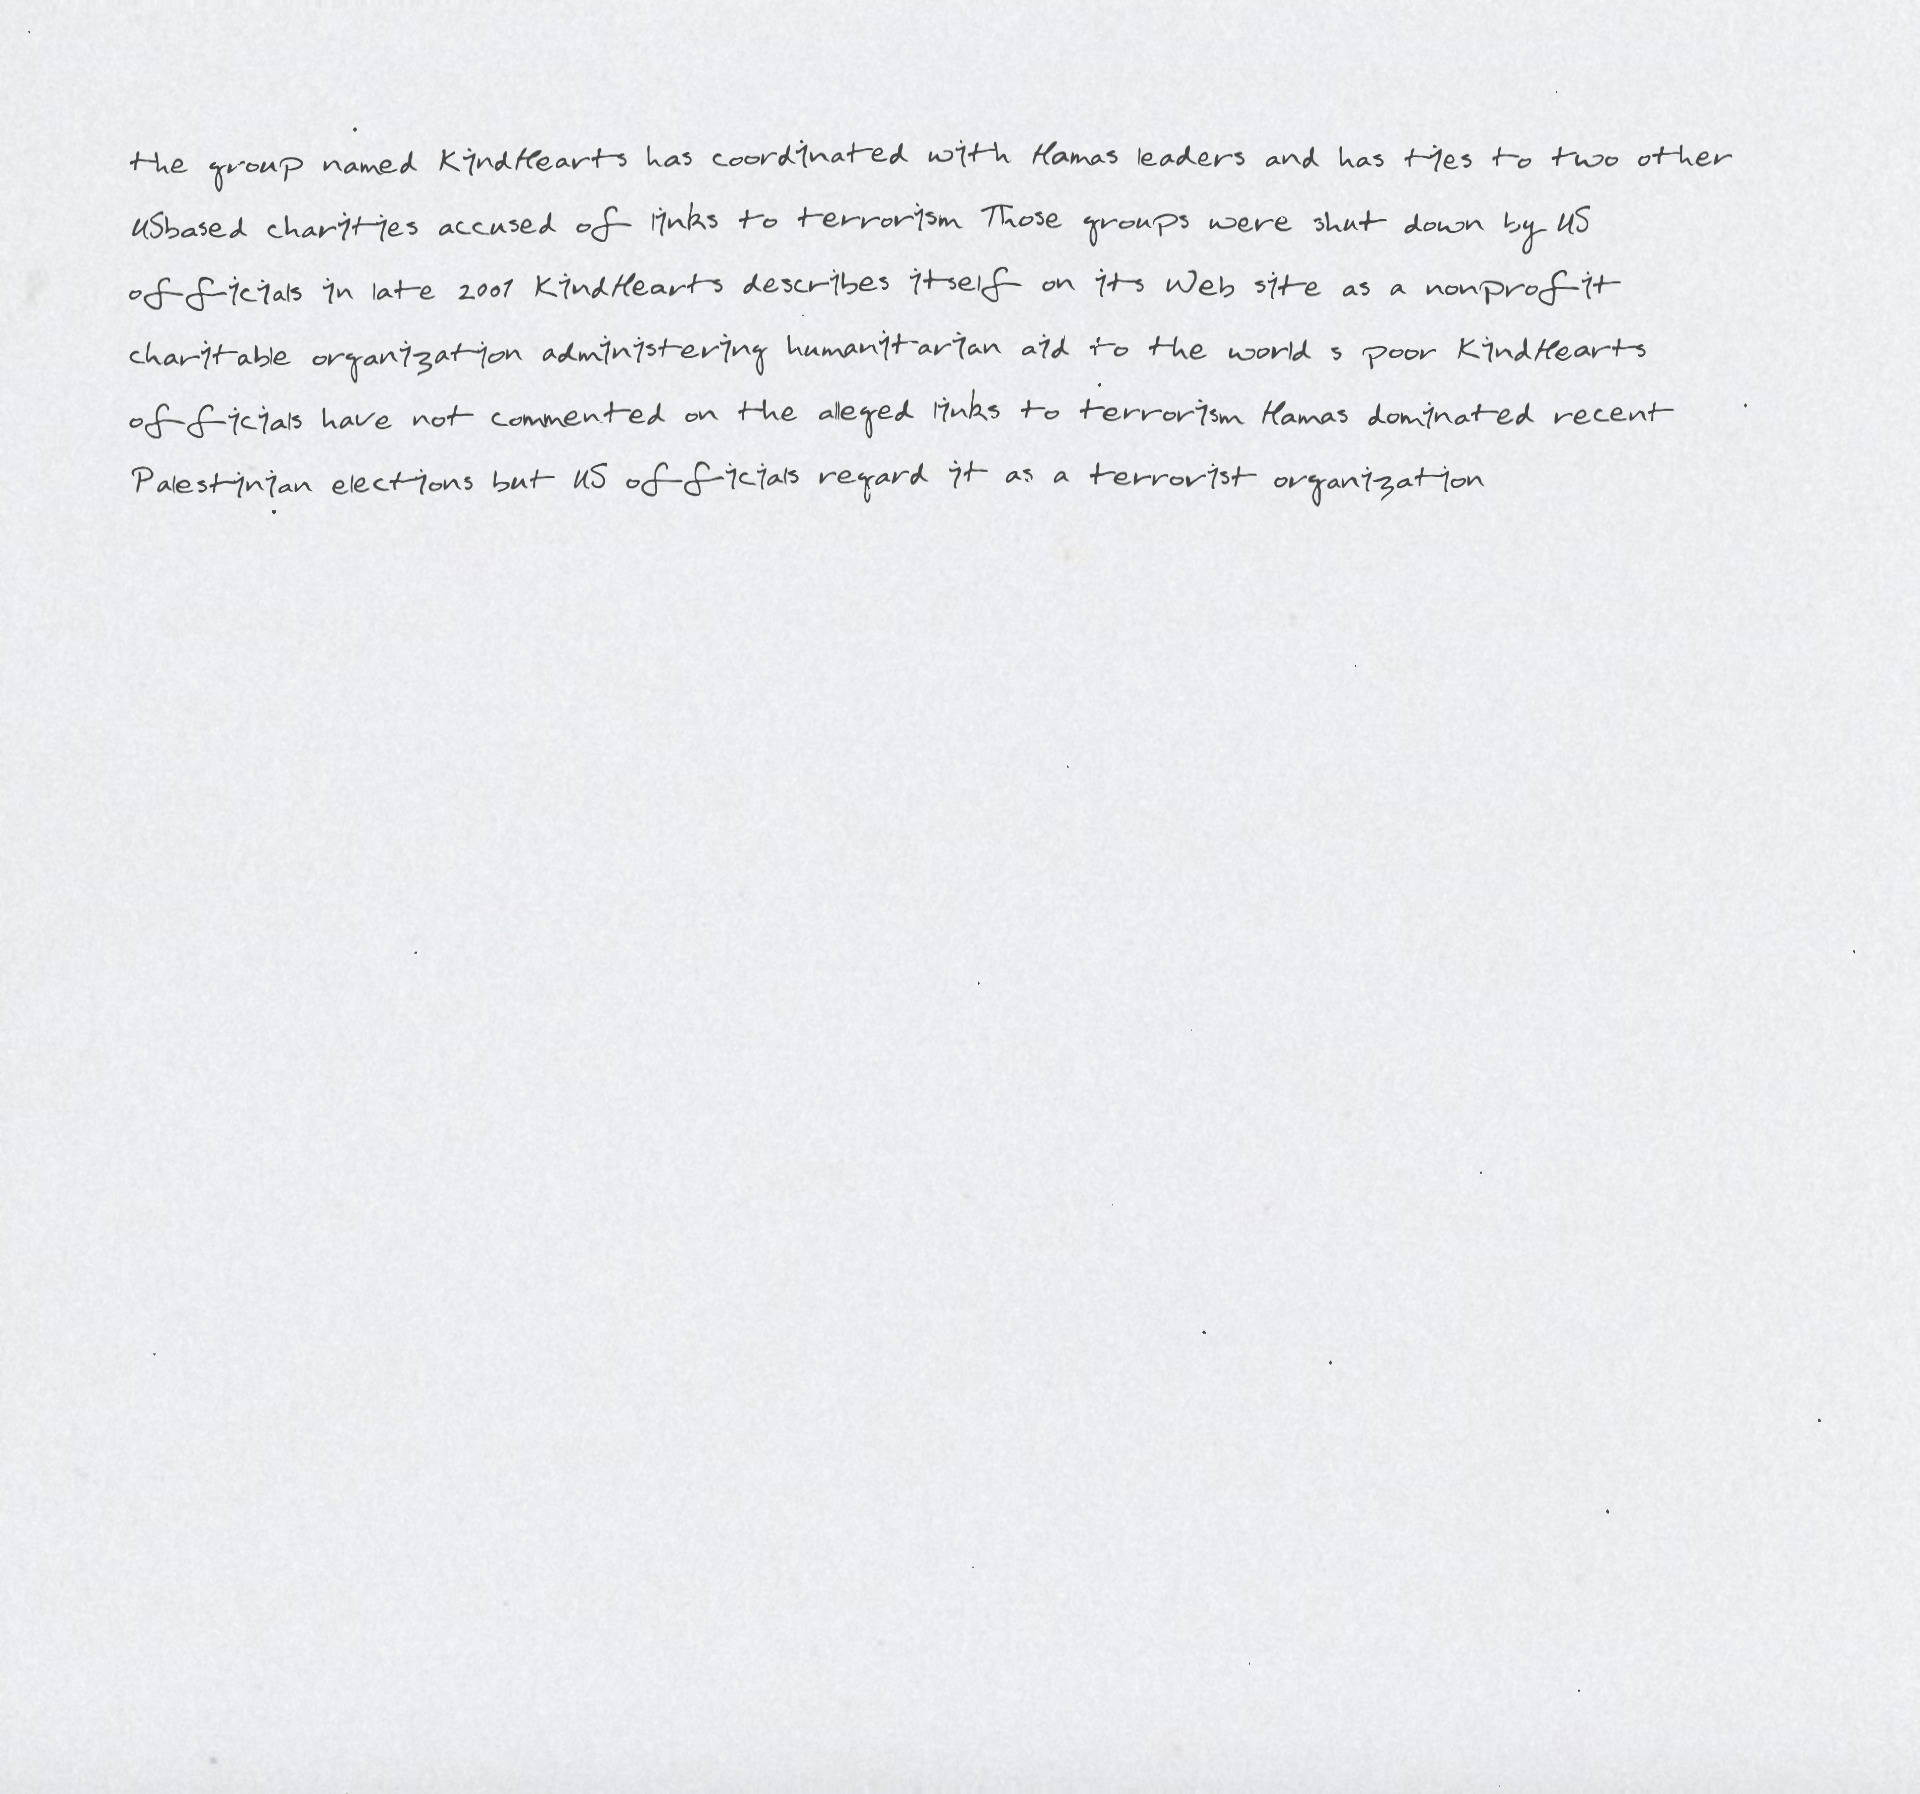 the group named KindHearts has coordinated with Hamas leaders and has ties to two other
USbased charities accused of links to terrorism Those groups were shut down by US
officials in late 2001 KindHearts describes itself on its Web site as a nonprofit
charitable organization administering humanitarian aid to the world s poor KindHearts
officials have not commented on the alleged links to terrorism Hamas dominated recent
Palestinian elections but US officials regard it as a terrorist organization